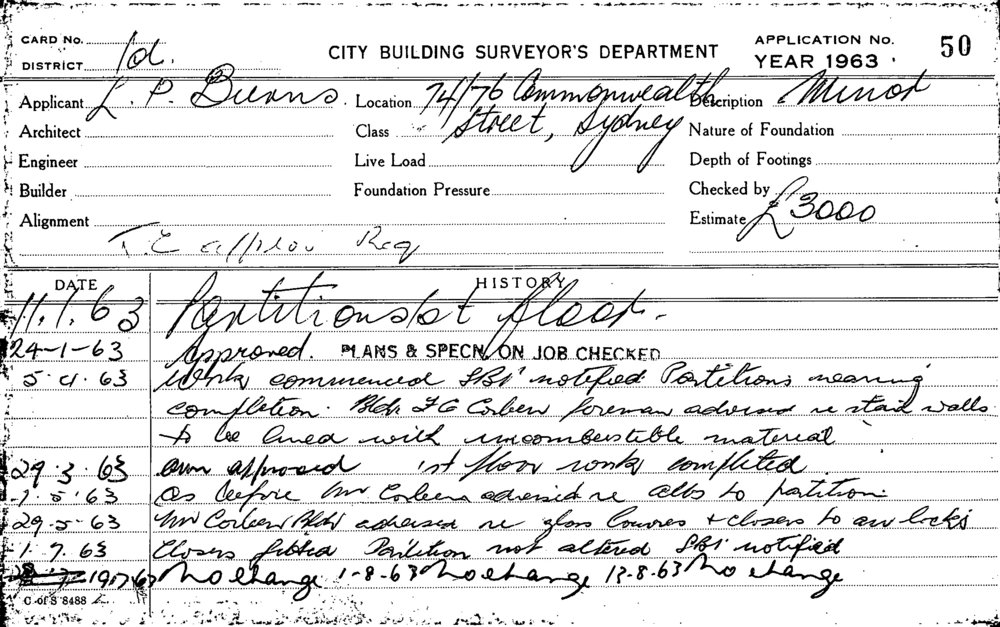 CARD No.
DISTRICT 1d.
CITY BUILDING SURVEYOR'S DEPARTMENT
APPLICATION No. 50
YEAR 1963
Applicant L. P. Burns. Location 74/76 Commonwealth Description Minor
Architect Class Street, Sydney Nature of Foundation
Engineer Live Load Depth of Footings
Builder Foundation Pressure Checked by
Alignment Estimate £3000
T.E approv Req
DATE HISTORY
11.1.63 Partitions 1st floor.
24-1-63 Approved. PLANS & SPECN. ON JOB CHECKED
5.4.63 Work commenced SBI notified Partitions nearing
completion. Bldr F G Corben foreman advised re stair walls
to be lined with uncombustible material
29.3.63 approved 1st floor work completed.
7.5.63 As before Mr Corben advised re alts to partition
29-5-63 Mr Corben Bldr advised re glass louvres + closers to air locks
1.7.63 Closers fitted Partition not altered SBI notified
19.7.63 No change 1-8-63 No change 13-8-63 No change
C. of S 8488